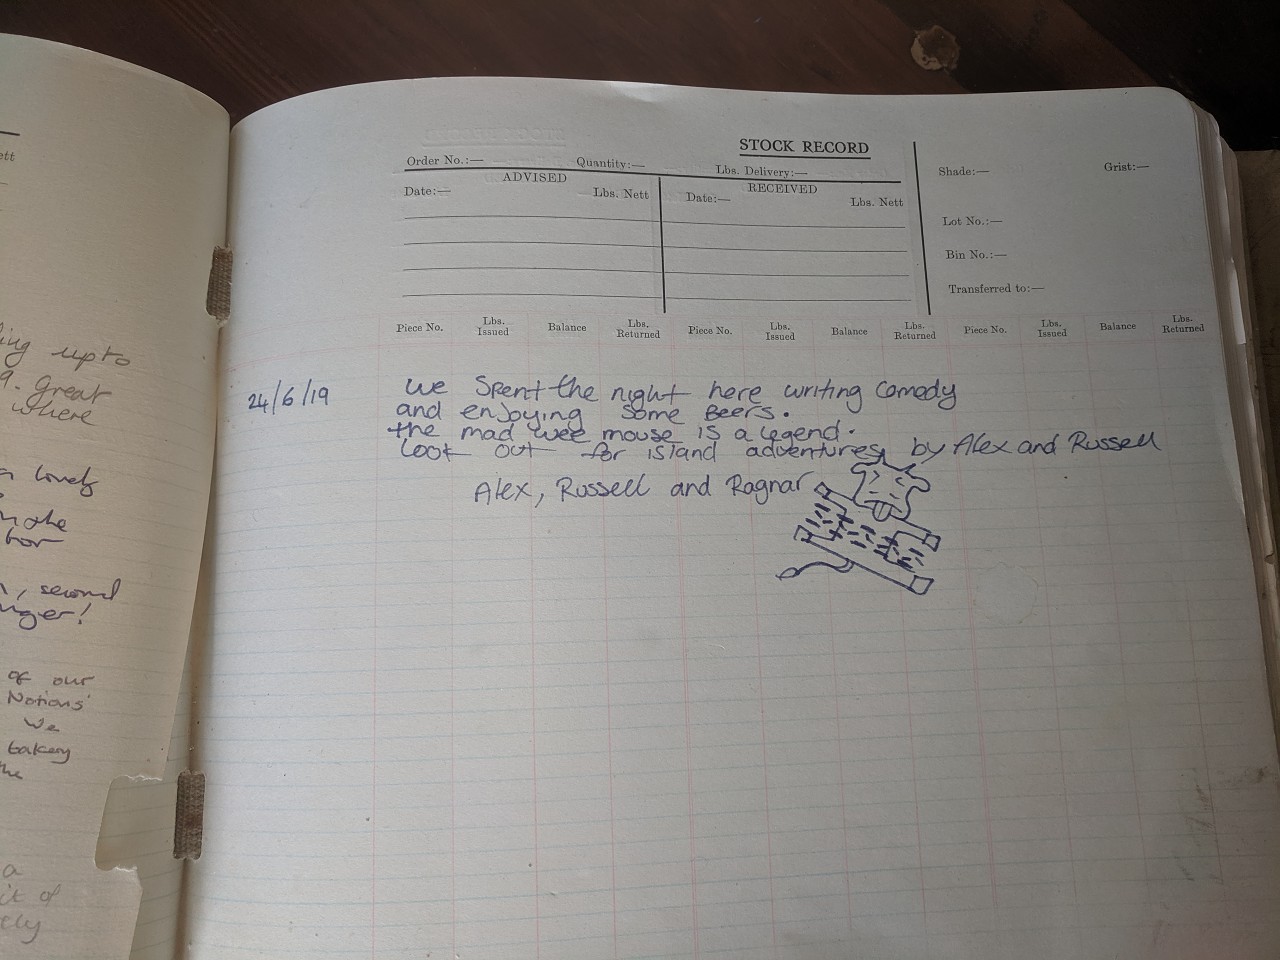 ett
ing up to
9. Great
where
lovely
, second
nger!
of our
Notions'
We
bakery
the
a
it of
ely
STOCK RECORD
Order No.:— Quantity:— Lbs. Delivery:—
ADVISED RECEIVED
Date:— Lbs. Nett Date:— Lbs. Nett
Shade:— Grist:—
Lot No.:—
Bin No.:—
Transferred to:—
Piece No. Lbs. Issued Balance Lbs. Returned Piece No. Lbs. Issued Balance Lbs. Returned Piece No. Lbs. Issued Balance Lbs. Returned
24/6/19 We Spent the night here writing Comedy
and enjoying some Beers.
the mad wee mouse is a legend.
Look out for island adventures by Alex and Russell
Alex, Russell and Ragnar